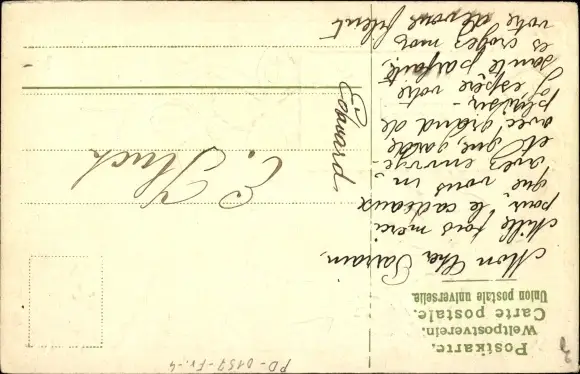 Postkarte.
Weltpostverein.
Carte postale.
Union postale universelle.
Mon cher Parrain.
Mille fois merci
pour le cadeaux
que vous m'
avez envoyé
et que garde
avec grand de
plaisir -
J'espère votre
santé parfaite,
es croyez moi
votre dévoué filleul
Edouard
E.
PD-0157-Fv.-4